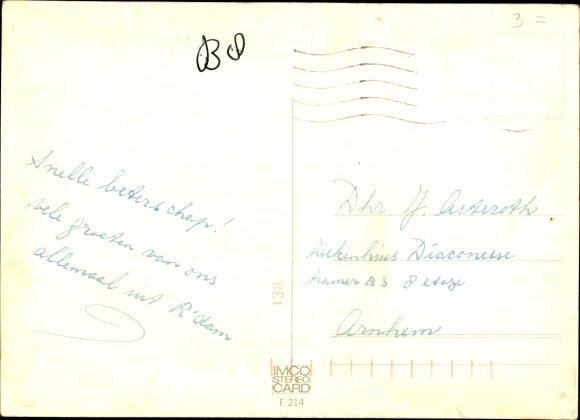 3 =
B 8
Snelle beterschap!
vele groeten van ons
allemaal uit R'dam
Dhr J. Asteroth
Ziekenhuis Diaconesse
kamer B 3 8 etage
Arnhem
138
IMCO
STEREO
CARD
F 214